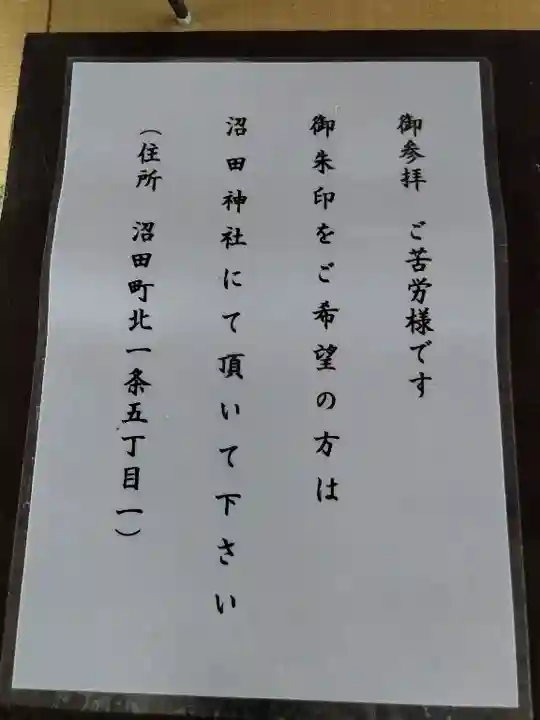 御参拝　ご苦労様です
御朱印をご希望の方は
沼田神社にて頂いて下さい
（住所　沼田町北一条五丁目一）